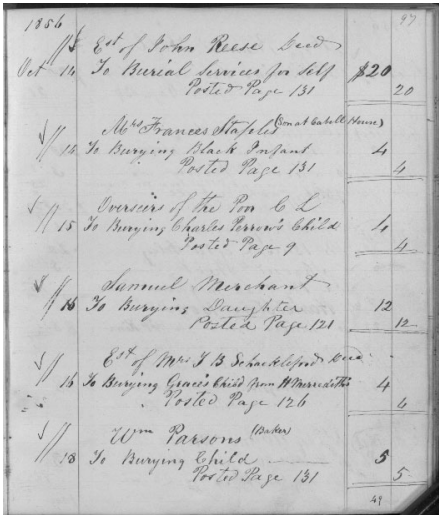 1856 97
Est of John Reese Decd
Oct 14 To Burial Services for Self $20
Posted Page 131 20
Mrs Frances Staples (Son at Cabell House)
15 To Burying Black Infant 4
Posted Page 131 4
Overseirs of the Poor C L
15 To Burying Charles Perrow's Child 4
Posted Page 9 4
Samuel Merchant
16 To Burying Daughter 12
Posted Page 121 12
Est of Mrs F B Schackleford Decd
16 To Burying Grace's Child from H Merediths 4
Posted Page 126
Wm Parsons (Baker)
18 To Burying Child 5
Posted Page 131 5
49